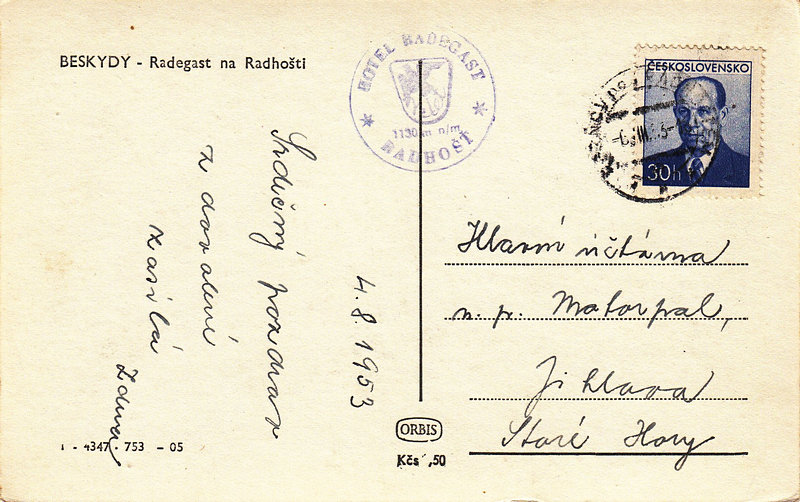 BESKYDY - Radegast na Radhošti
HOTEL RADEGAST
1130 m n/m
RADHOŠŤ
ČESKOSLOVENSKO
30h
Srdečný pozdrav
z dovolené
zasílá
Zdena
4.8.1953
Hlavní účtárna
n. p. Motorpal,
Jihlava
Staré Hory
ORBIS
Kčs ,50
1 - 4347 - 753 - 05